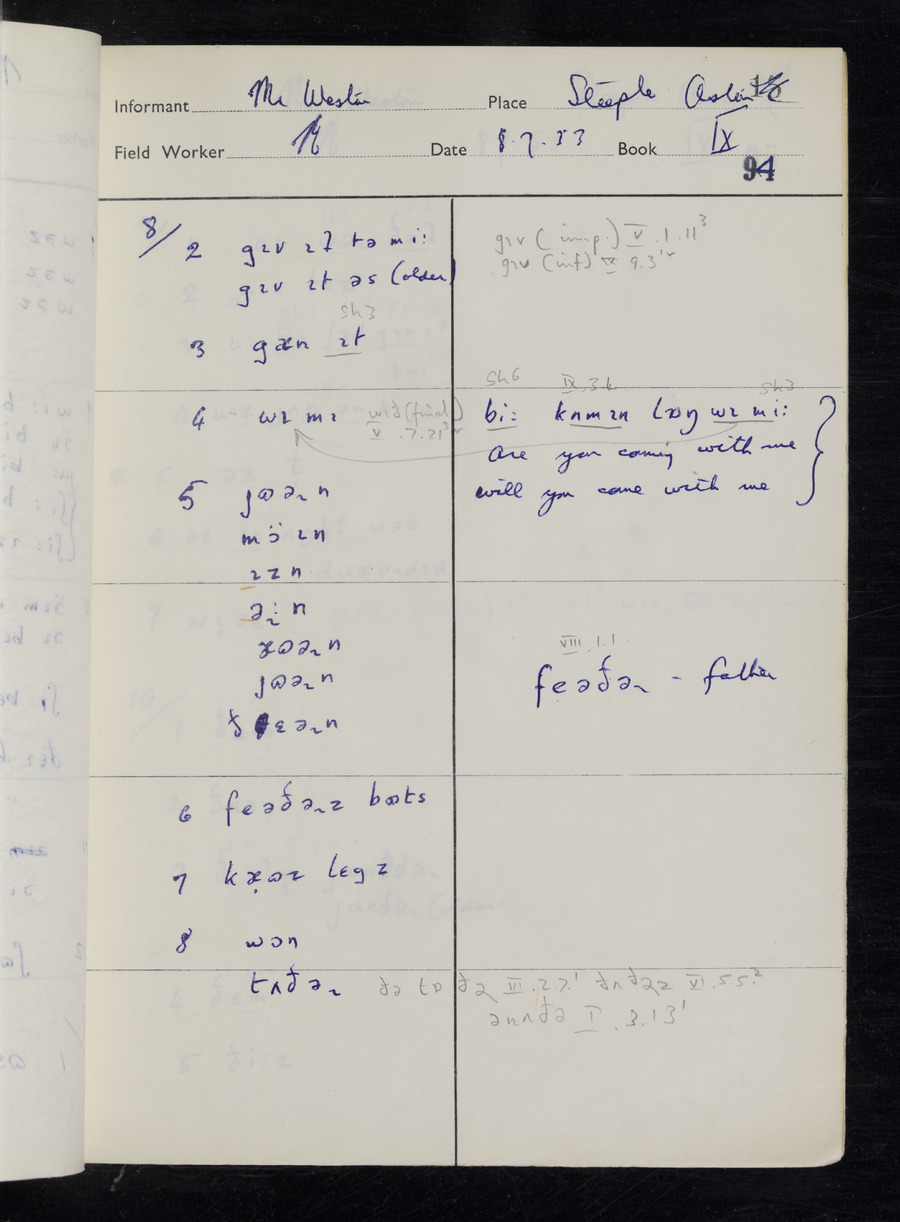 Informant Mr Weston Place Steeple Aston
Field Worker Date 8.7.53 Book IX
94
8/
2 gɪv ɪʔ tə mi: gɪv (imp.) V.1.11³
gɪv ɪt əs (older) gɪv (inf) IX 9.3
sh3
3 gæn ɪt
sh6 IX.3.4 sh3
4 wɪ mɪ wɪð (final) bi: kʌmɪn lɒŋ wɪ mi:
V.7.21 are you coming with me
will you come with me
5 jɷəɹn
mɔ̈ɪn
ɪzn
əɹ:n
VIII.1.1
æɷəɹn
jɷəɹn feəðəɹ - father
ðɛəɹn
6 feəðəɹz bɷts
7 kæɷz lɛgz
8 wɔn
tʌðəɹ ðə tɒ ðəɹ VI.2.7¹ ðʌðəz VI.5.5.²
ənʌðə I.3.13¹